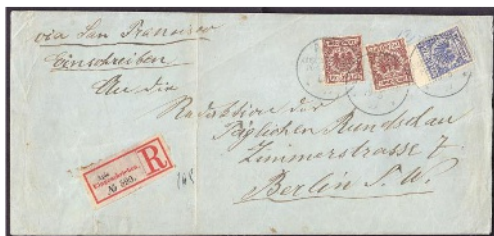 via San Francisco
Einschreiben
An die
Redaktion der
Täglichen Rundschau
Zimmerstrasse 7.
Berlin S. W.
Apia
Eingeschrieben.
R
№ 593.